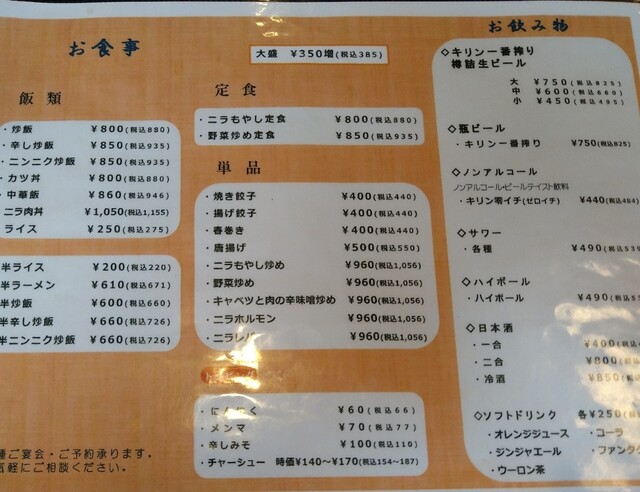 お食事
大盛 ¥350増(税込385)
飯類
・炒飯 ¥800(税込880)
・辛し炒飯 ¥850(税込935)
・ニンニク炒飯 ¥850(税込935)
・カツ丼 ¥800(税込880)
・中華飯 ¥860(税込946)
ニラ肉丼 ¥1,050(税込1,155)
ライス ¥250(税込275)
半ライス ¥200(税込220)
半ラーメン ¥610(税込671)
半炒飯 ¥600(税込660)
半辛し炒飯 ¥660(税込726)
半ニンニク炒飯 ¥660(税込726)
ご宴会・ご予約承ります。
気軽にご相談ください。
定食
・ニラもやし定食 ¥800(税込880)
・野菜炒め定食 ¥850(税込935)
単品
・焼き餃子 ¥400(税込440)
・揚げ餃子 ¥400(税込440)
・春巻き ¥400(税込440)
・唐揚げ ¥500(税込550)
・ニラもやし炒め ¥960(税込1,056)
・野菜炒め ¥960(税込1,056)
・キャベツと肉の辛味噌炒め ¥960(税込1,056)
・ニラホルモン ¥960(税込1,056)
・ニラレバ ¥960(税込1,056)
・にんにく ¥60(税込66)
・メンマ ¥70(税込77)
・辛しみそ ¥100(税込110)
・チャーシュー 時価¥140〜¥170(税込154〜187)
お飲み物
◇キリン一番搾り
樽詰生ビール
大 ¥750(税込825)
中 ¥600(税込660)
小 ¥450(税込495)
◇瓶ビール
・キリン一番搾り ¥750(税込825)
◇ノンアルコール
ノンアルコール・ビールテイスト飲料
・キリン零イチ(ゼロイチ) ¥440(税込484)
◇サワー
・各種 ¥490(税込539
◇ハイボール
・ハイボール ¥490(税込53
◇日本酒
・一合 ¥400(税込44
・二合 ¥800(税込
・冷酒 ¥850(税込
◇ソフトドリンク 各¥250(税
・オレンジジュース ・コーラ
・ジンジャエール ・ファンタ
・ウーロン茶